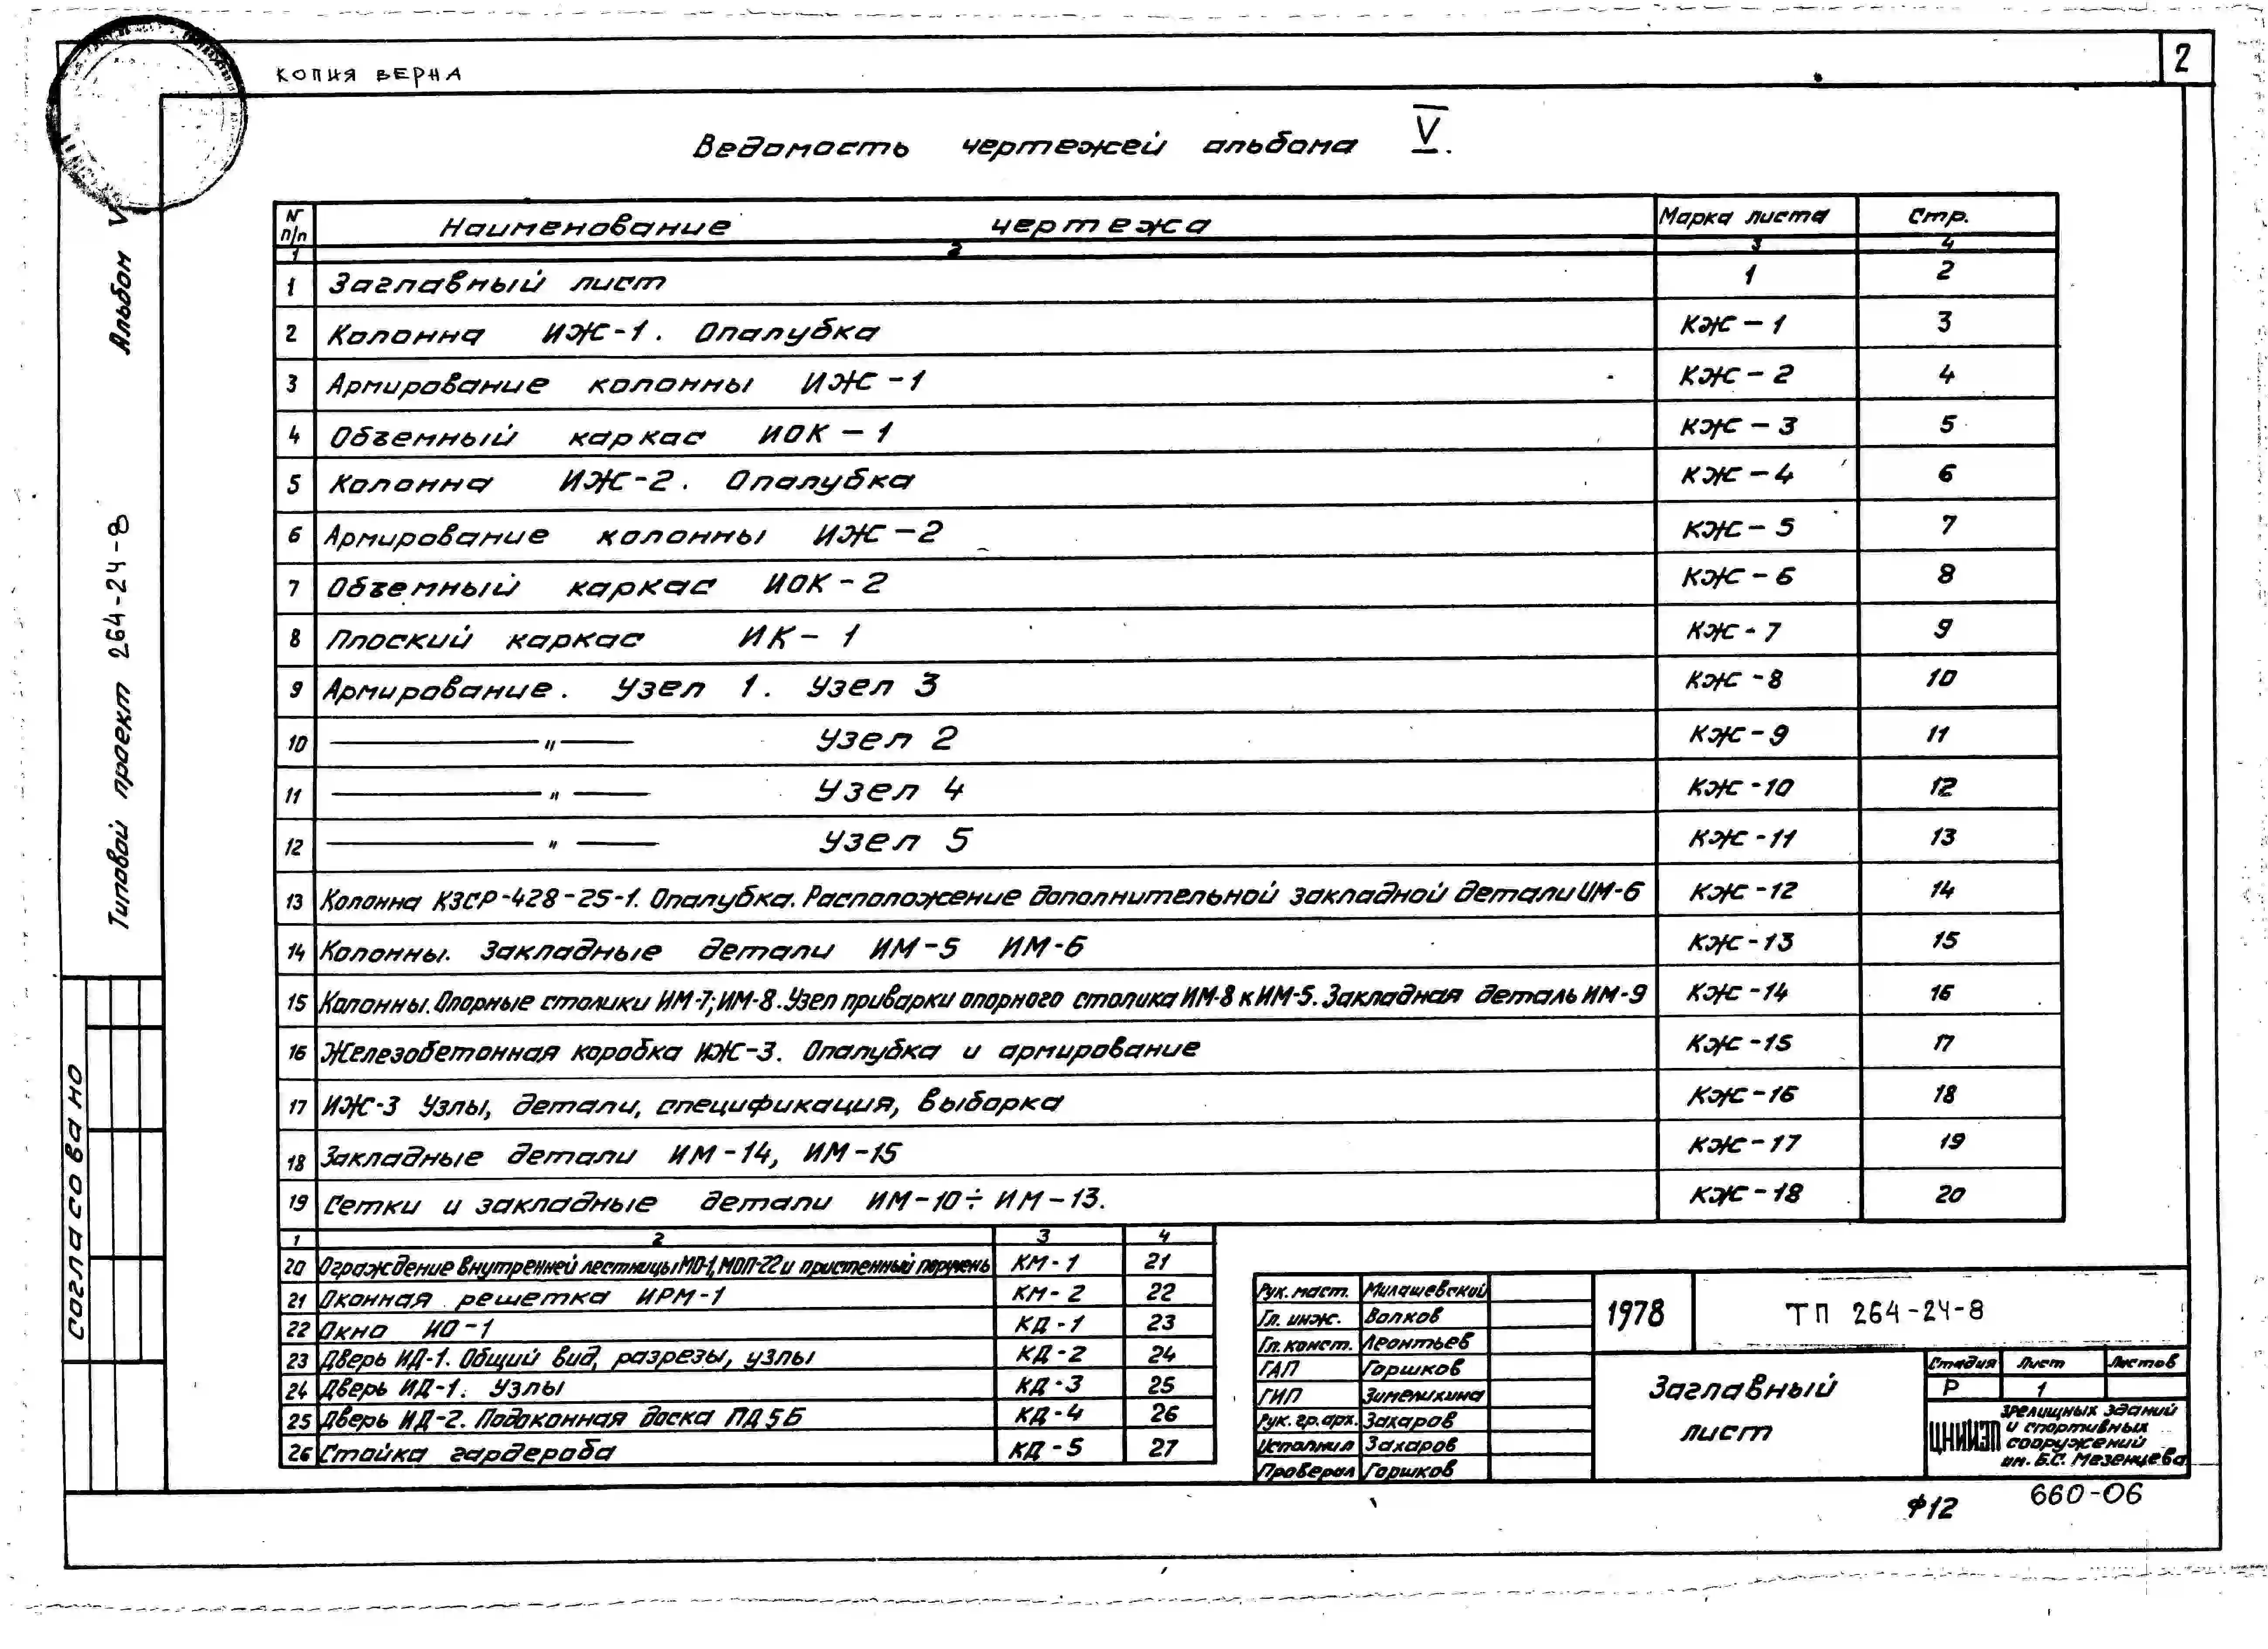 2
КОПИЯ ВЕРНА
Ведомость чертежей альбома V.
Альбом V
Типовой проект 264-24-8
Согласовано
№ п/п Наименование чертежа Марка листа Стр.
1 2 3 4
1 Заглавный лист 1 2
2 Колонна ИЖ-1. Опалубка КЖ-1 3
3 Армирование колонны ИЖ-1 КЖ-2 4
4 Объемный каркас ИОК-1 КЖ-3 5
5 Колонна ИЖ-2. Опалубка КЖ-4 6
6 Армирование колонны ИЖ-2 КЖ-5 7
7 Объемный каркас ИОК-2 КЖ-6 8
8 Плоский каркас ИК-1 КЖ-7 9
9 Армирование. Узел 1. Узел 3 КЖ-8 10
10 —"— Узел 2 КЖ-9 11
11 —"— Узел 4 КЖ-10 12
12 —"— Узел 5 КЖ-11 13
13 Колонна КЗСР-428-25-1. Опалубка. Расположение дополнительной закладной детали ИМ-6 КЖ-12 14
14 Колонны. Закладные детали ИМ-5 ИМ-6 КЖ-13 15
15 Колонны. Опорные столики ИМ-7; ИМ-8. Узел приварки опорного столика ИМ-8 к ИМ-5. Закладная деталь ИМ-9 КЖ-14 16
16 Железобетонная коробка ИЖ-3. Опалубка и армирование КЖ-15 17
17 ИЖ-3 Узлы, детали, спецификация, выборка КЖ-16 18
18 Закладные детали ИМ-14, ИМ-15 КЖ-17 19
19 Сетки и закладные детали ИМ-10÷ИМ-13. КЖ-18 20
1 2 3 4
20 Ограждение внутренней лестницы МО-1, МОП-22 и пристенный поручень КМ-1 21
21 Оконная решетка ИРМ-1 КМ-2 22
22 Окно ИО-1 КД-1 23
23 Дверь ИД-1. Общий вид, разрезы, узлы КД-2 24
24 Дверь ИД-1. Узлы КД-3 25
25 Дверь ИД-2. Подоконная доска ПД5Б КД-4 26
26 Стойка гардероба КД-5 27
Рук. маст. Милашевский
Гл. инж. Волков
Гл. конст. Леонтьев
ГАП Горшков
ГИП Зимелихина
Рук. гр. арх. Захаров
Исполнил Захаров
Проверил Горшков
1978
ТП 264-24-8
Заглавный
лист
Стадия Лист Листов
Р 1
ЦНИИЭП зрелищных зданий
и спортивных
сооружений
им. Б.С. Мезенцева
Ф12
660-06